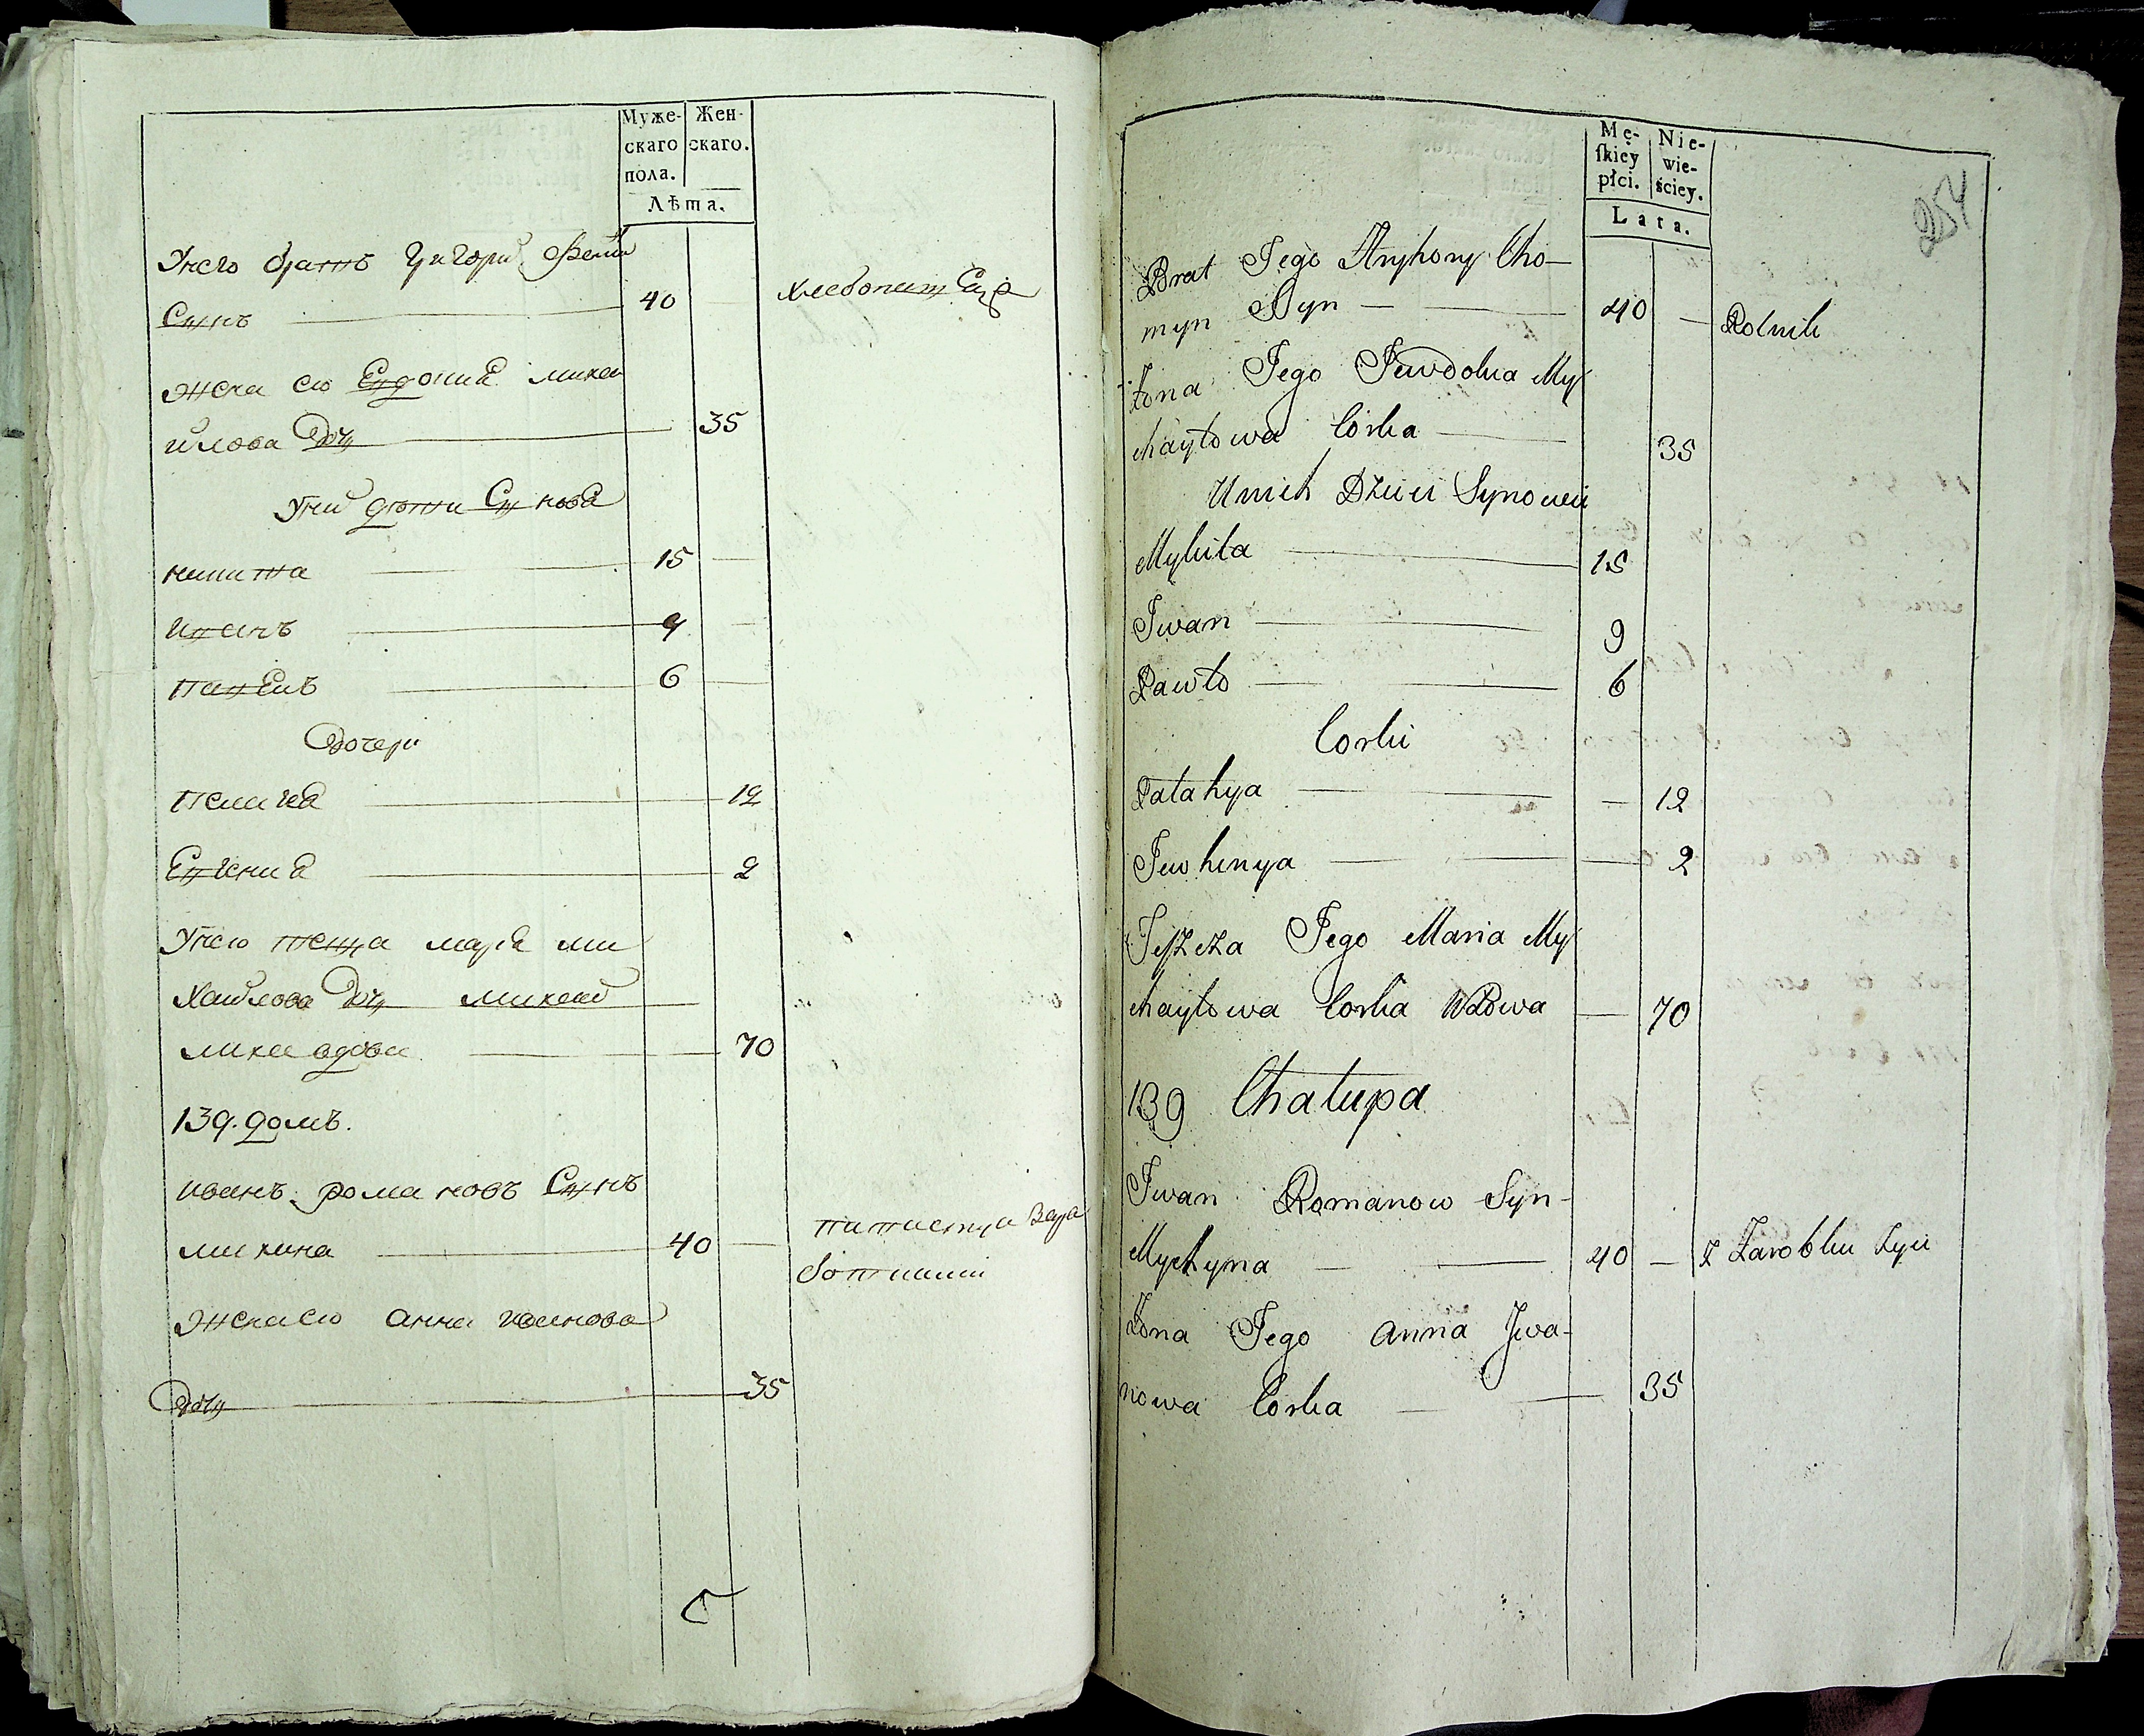 Муже-
скаго
пола.
Жен-
скаго.
Лѣта.
Унего братъ григорий
Сынъ 40 хлебопашецъ
Жена его Евдокиа михаи
илова Дочь 35
Униӣ дѣти Сынова
никита 15
иванъ 9
павелъ 6
Дочери
Пелагиа 12
Евгениа 2
Унего теща мариа ми
хайлова Дочь
вдова 70
139. домъ.
иванъ романовъ Сынъ
михина 40 питается зара
ботками
Жена его анна иванова
Дочь 35
Mę-
ſkiey
płci.
Nie-
wie-
ściey.
Lata.
254
Brat Jego Hryhory Cho-
myn Syn 40 Rolnik
Żona Jego Jewdokia My
chayłowa Corka 35
Unich Dzieci Synowie
Mykita 15
Iwan 9
Pawło 6
Corki
Palahya 12
Jewhenya 2
Teszcza Jego Maria My
chayłowa Corka Wdowa 70
139 Chałupa
Iwan Romanow Syn
Mychyna 40 Z Zarobku Żyie
Żona Jego Anna Iwa-
nowa Corka 35